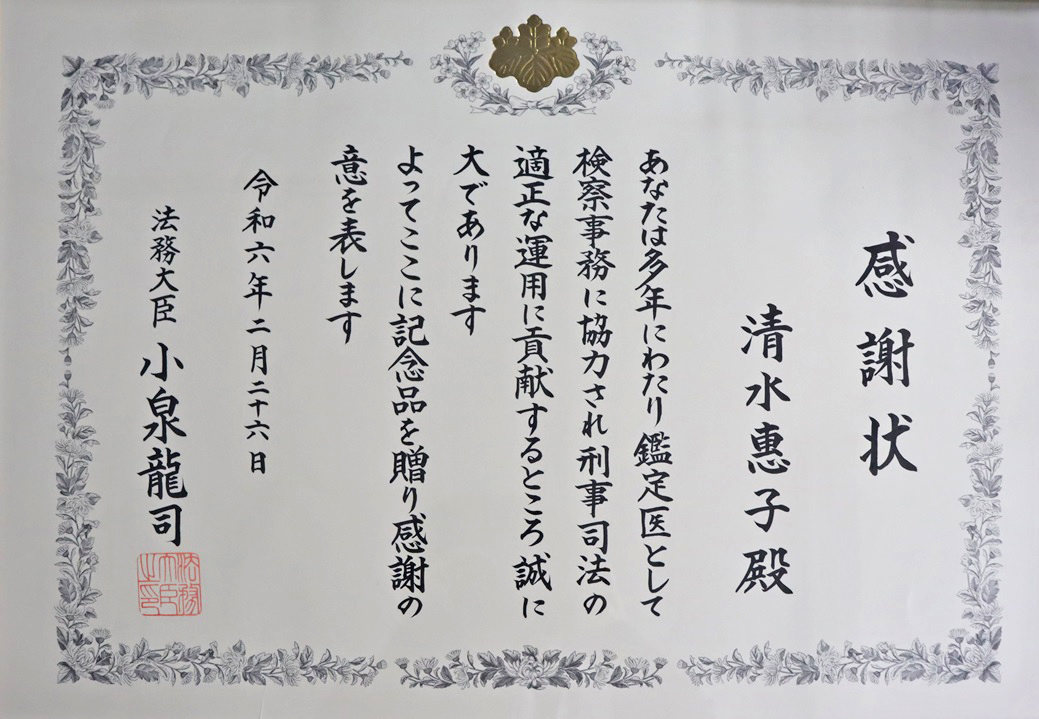 感謝状
清水惠子殿
あなたは多年にわたり鑑定医として
検察事務に協力され刑事司法の
適正な運用に貢献するところ誠に
大であります
よってここに記念品を贈り感謝の
意を表します
令和六年二月二十六日
法務大臣 小泉龍司
法務大臣之印